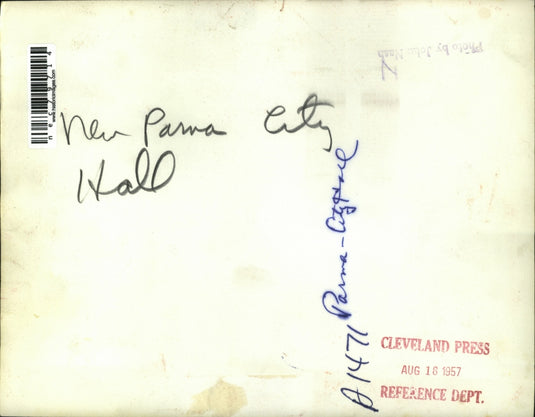 Photo by John Nash
New Parma City
Hall
A1471 Parma-City Hall
CLEVELAND PRESS
AUG 18 1957
REFERENCE DEPT.